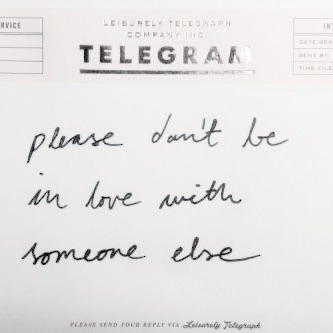 ERVICE
LEISURELY TELEGRAPH
COMPANY INC.
TELEGRAM
DATE SEN
SENT BY
TIME FILE
please don't be
in love with
someone else
PLEASE SEND YOUR REPLY VIA Leisurely Telegraph